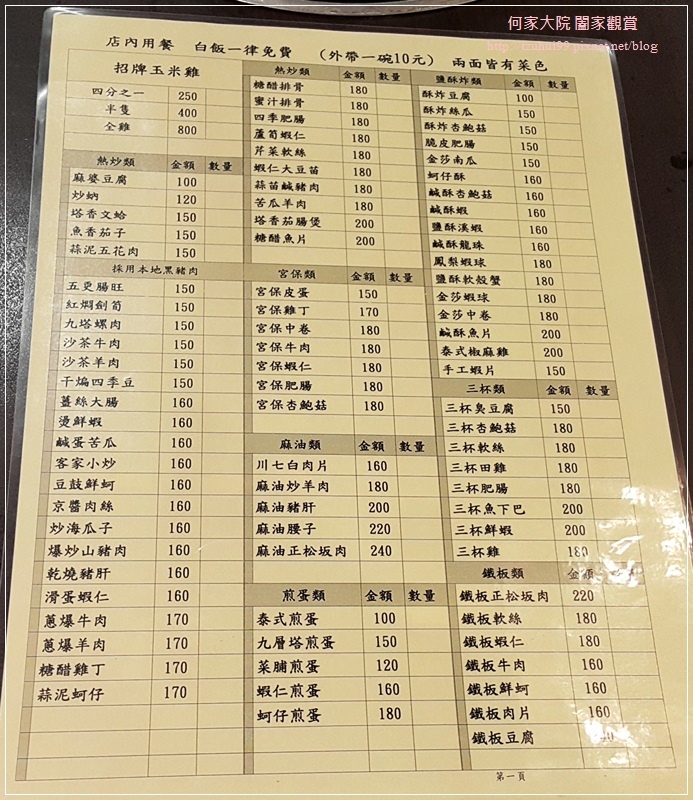 何家大院 闔家觀賞
http://tzuhui99.pixnet.net/blog
店內用餐 白飯一律免費 (外帶一碗10元) 兩面皆有菜色
招牌玉米雞
四分之一 250
半隻 400
全雞 800
熱炒類 金額 數量
麻婆豆腐 100
炒蚋 120
塔香文蛤 150
魚香茄子 150
蒜泥五花肉 150
採用本地黑豬肉
五更腸旺 150
紅燜劍筍 150
九塔螺肉 150
沙茶牛肉 150
沙茶羊肉 150
干煸四季豆 150
薑絲大腸 160
燙鮮蝦 160
鹹蛋苦瓜 160
客家小炒 160
豆鼓鮮蚵 160
京醬肉絲 160
炒海瓜子 160
爆炒山豬肉 160
乾燒豬肝 160
滑蛋蝦仁 160
蔥爆牛肉 170
蔥爆羊肉 170
糖醋雞丁 170
蒜泥蚵仔 170
熱炒類 金額 數量
糖醋排骨 180
蜜汁排骨 180
四季肥腸 180
蘆筍蝦仁 180
芹菜軟絲 180
蝦仁大豆苗 180
蒜苗鹹豬肉 180
苦瓜羊肉 180
塔香茄腸煲 200
糖醋魚片 200
宮保類 金額 數量
宮保皮蛋 150
宮保雞丁 170
宮保中卷 180
宮保牛肉 180
宮保蝦仁 180
宮保肥腸 180
宮保杏鮑菇 180
麻油類 金額 數量
川七白肉片 160
麻油炒羊肉 180
麻油豬肝 200
麻油腰子 220
麻油正松坂肉 240
煎蛋類 金額 數量
泰式煎蛋 100
九層塔煎蛋 150
菜脯煎蛋 120
蝦仁煎蛋 160
蚵仔煎蛋 180
鹽酥炸類 金額 數量
酥炸豆腐 100
酥炸絲瓜 150
酥炸杏鮑菇 150
脆皮肥腸 150
金莎南瓜 150
蚵仔酥 160
鹹酥杏鮑菇 160
鹹酥蝦 160
鹽酥溪蝦 160
鹹酥龍珠 160
鳳梨蝦球 180
鹽酥軟殼蟹 180
金莎蝦球 180
金莎中卷 180
鹹酥魚片 200
泰式椒麻雞 200
手工蝦片 150
三杯類 金額 數量
三杯臭豆腐 150
三杯杏鮑菇 180
三杯軟絲 180
三杯田雞 180
三杯肥腸 180
三杯魚下巴 200
三杯鮮蝦 200
三杯雞 180
鐵板類 金
鐵板正松坂肉 220
鐵板軟絲 180
鐵板蝦仁 180
鐵板牛肉 160
鐵板鮮蚵 160
鐵板肉片 160
鐵板豆腐
第一頁